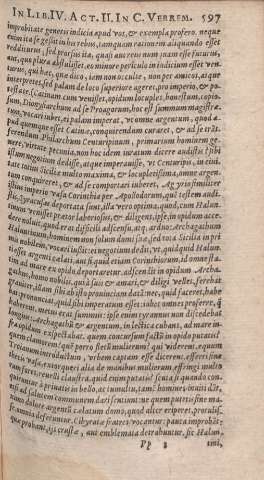 IN LIB. IV. ACT. II. IN C. VERREM. 597
improbitate generis indicia apud vos, & exempla profero. neque
enim ita se gestat in his rebus, tamquam rationem aliquando esset
redditurus, sed prorsus ita, quasi aut reus numquam esset futurus,
aut, quo plura abstulisset, eo minore periculo in iudicium esset ven-
turus, qui hæc, quæ dico, iam non occulte, non per amicos, atque
interpretes, sed palam de loco superiore ageret, pro imperio, & po-
testate. (Catinam cum venisset, oppidum locuples, honestum, copio-
sum, Dionysiarchum ad se Proagorum, hoc est summum magistra-
tum, vocari iubet, ei palam imperat, ut omne argentum, quod a-
pud quemque esset Catinæ, conquirendum curaret, & ad se
Centuripinum, primarium hominem
virtute pecunia, non hoc idem iuratum dicere audistis
negotium dedisse, atque imperavisse, ut Centuripis, in civi-
tate totius Siciliæ multo maxima, & locupletissima, omne argen-
tum conquireret, & ad se comportari iuberet, Agyrio similiter
istius imperio vasa Corinthia per Apollodorum, quem testem audi-
stis, Syracusas deportata sunt. illa vero optima, quod, cum Halun-
tium venisset prætor laboriosus, & diligens, ipse in oppidum acce-
dere noluit, quod erat difficili adscensu, atq. arduo: Archagathum
Haluntinum, hominem non solum domi suæ, sed tota Sicilia in pri-
mis nobilem, vocari iussit: ei negotium dedit, ut, quidquid Halun-
tii esset argenti cælati, aut si quid etiam Corinthiorum, id omne sta-
tim ad mare ex oppido deportaretur. adscendit in oppidum Archa-
gathus, homo nobilis, qui a suis & amari, & diligi vellet, ferebat
graviter, illam sibi ab isto provinciam datam: nec, quid faceret, habe-
bat, pronunciat, quid sibi imperatum esset: iubet omnes proferre, quod
haberent, metus erat summus: ipse enim tyrannus non discedebat
longius: Archagathum & argentum, in lectica cubans, ad mare in-
fra oppidum exspectabat. quem concursum factum in oppido putatis?
quem clamorem? quem porro fletum mulierum? qui viderent, equum
Troianum introductum, urbem captam esse dicerent. efferri sine
thecis vasa, extorqueri alia de manibus mulierum, effringi multo-
rum fores, revelli claustra. quid enim putatis? scuta si quando con-
quiruntur a privatis in bello, ac tumultu, tamen homines inviti dant,
etsi ad salutem communem dari sentiunt: ne quem putetis sine ma-
ximo dolore argentum cælatum domo, quod alter eriperet, protulisse.
omnia deferuntur. Cibyratæ fratres vocantur: pauca improbant:
quæ probarant, iis crustæ, aut emblemata detrahuntur. sic Halun-
Pp 3 tini,